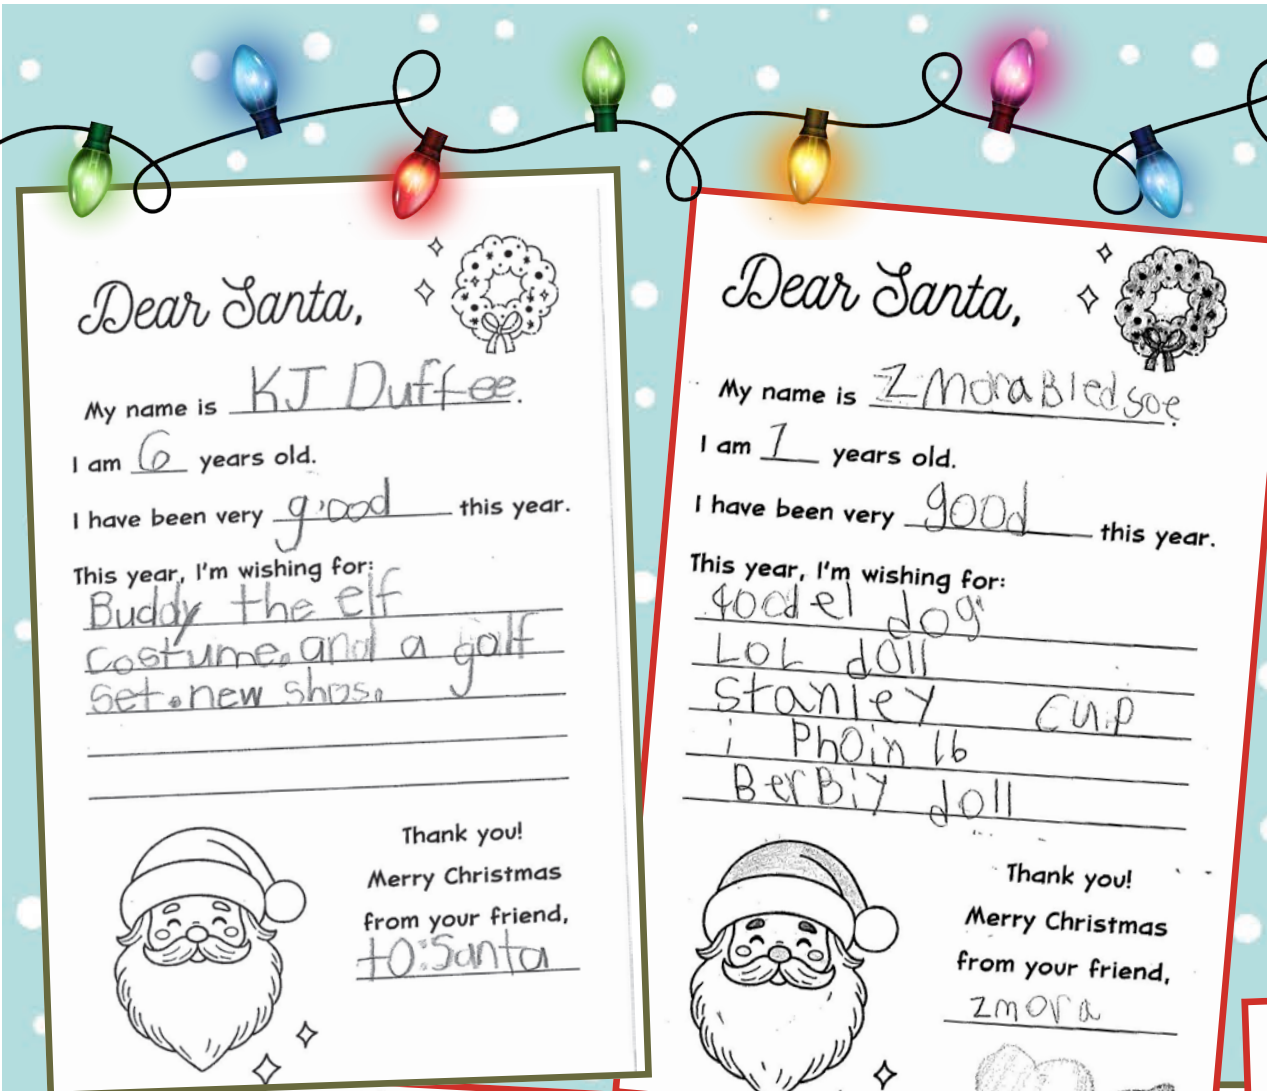 Dear Santa,
My name is KJ Duffee.
I am 6 years old.
I have been very good this year.
This year, I'm wishing for:
Buddy the elf
costume. and a golf
set. new shos.
Thank you!
Merry Christmas
from your friend,
to: Santa
Dear Santa,
My name is Zmora Bledsoe.
I am 7 years old.
I have been very good this year.
This year, I'm wishing for:
dog
LOL doll
Stanley cup
i PhOin 16
BerBiy doll
Thank you!
Merry Christmas
from your friend,
zmora